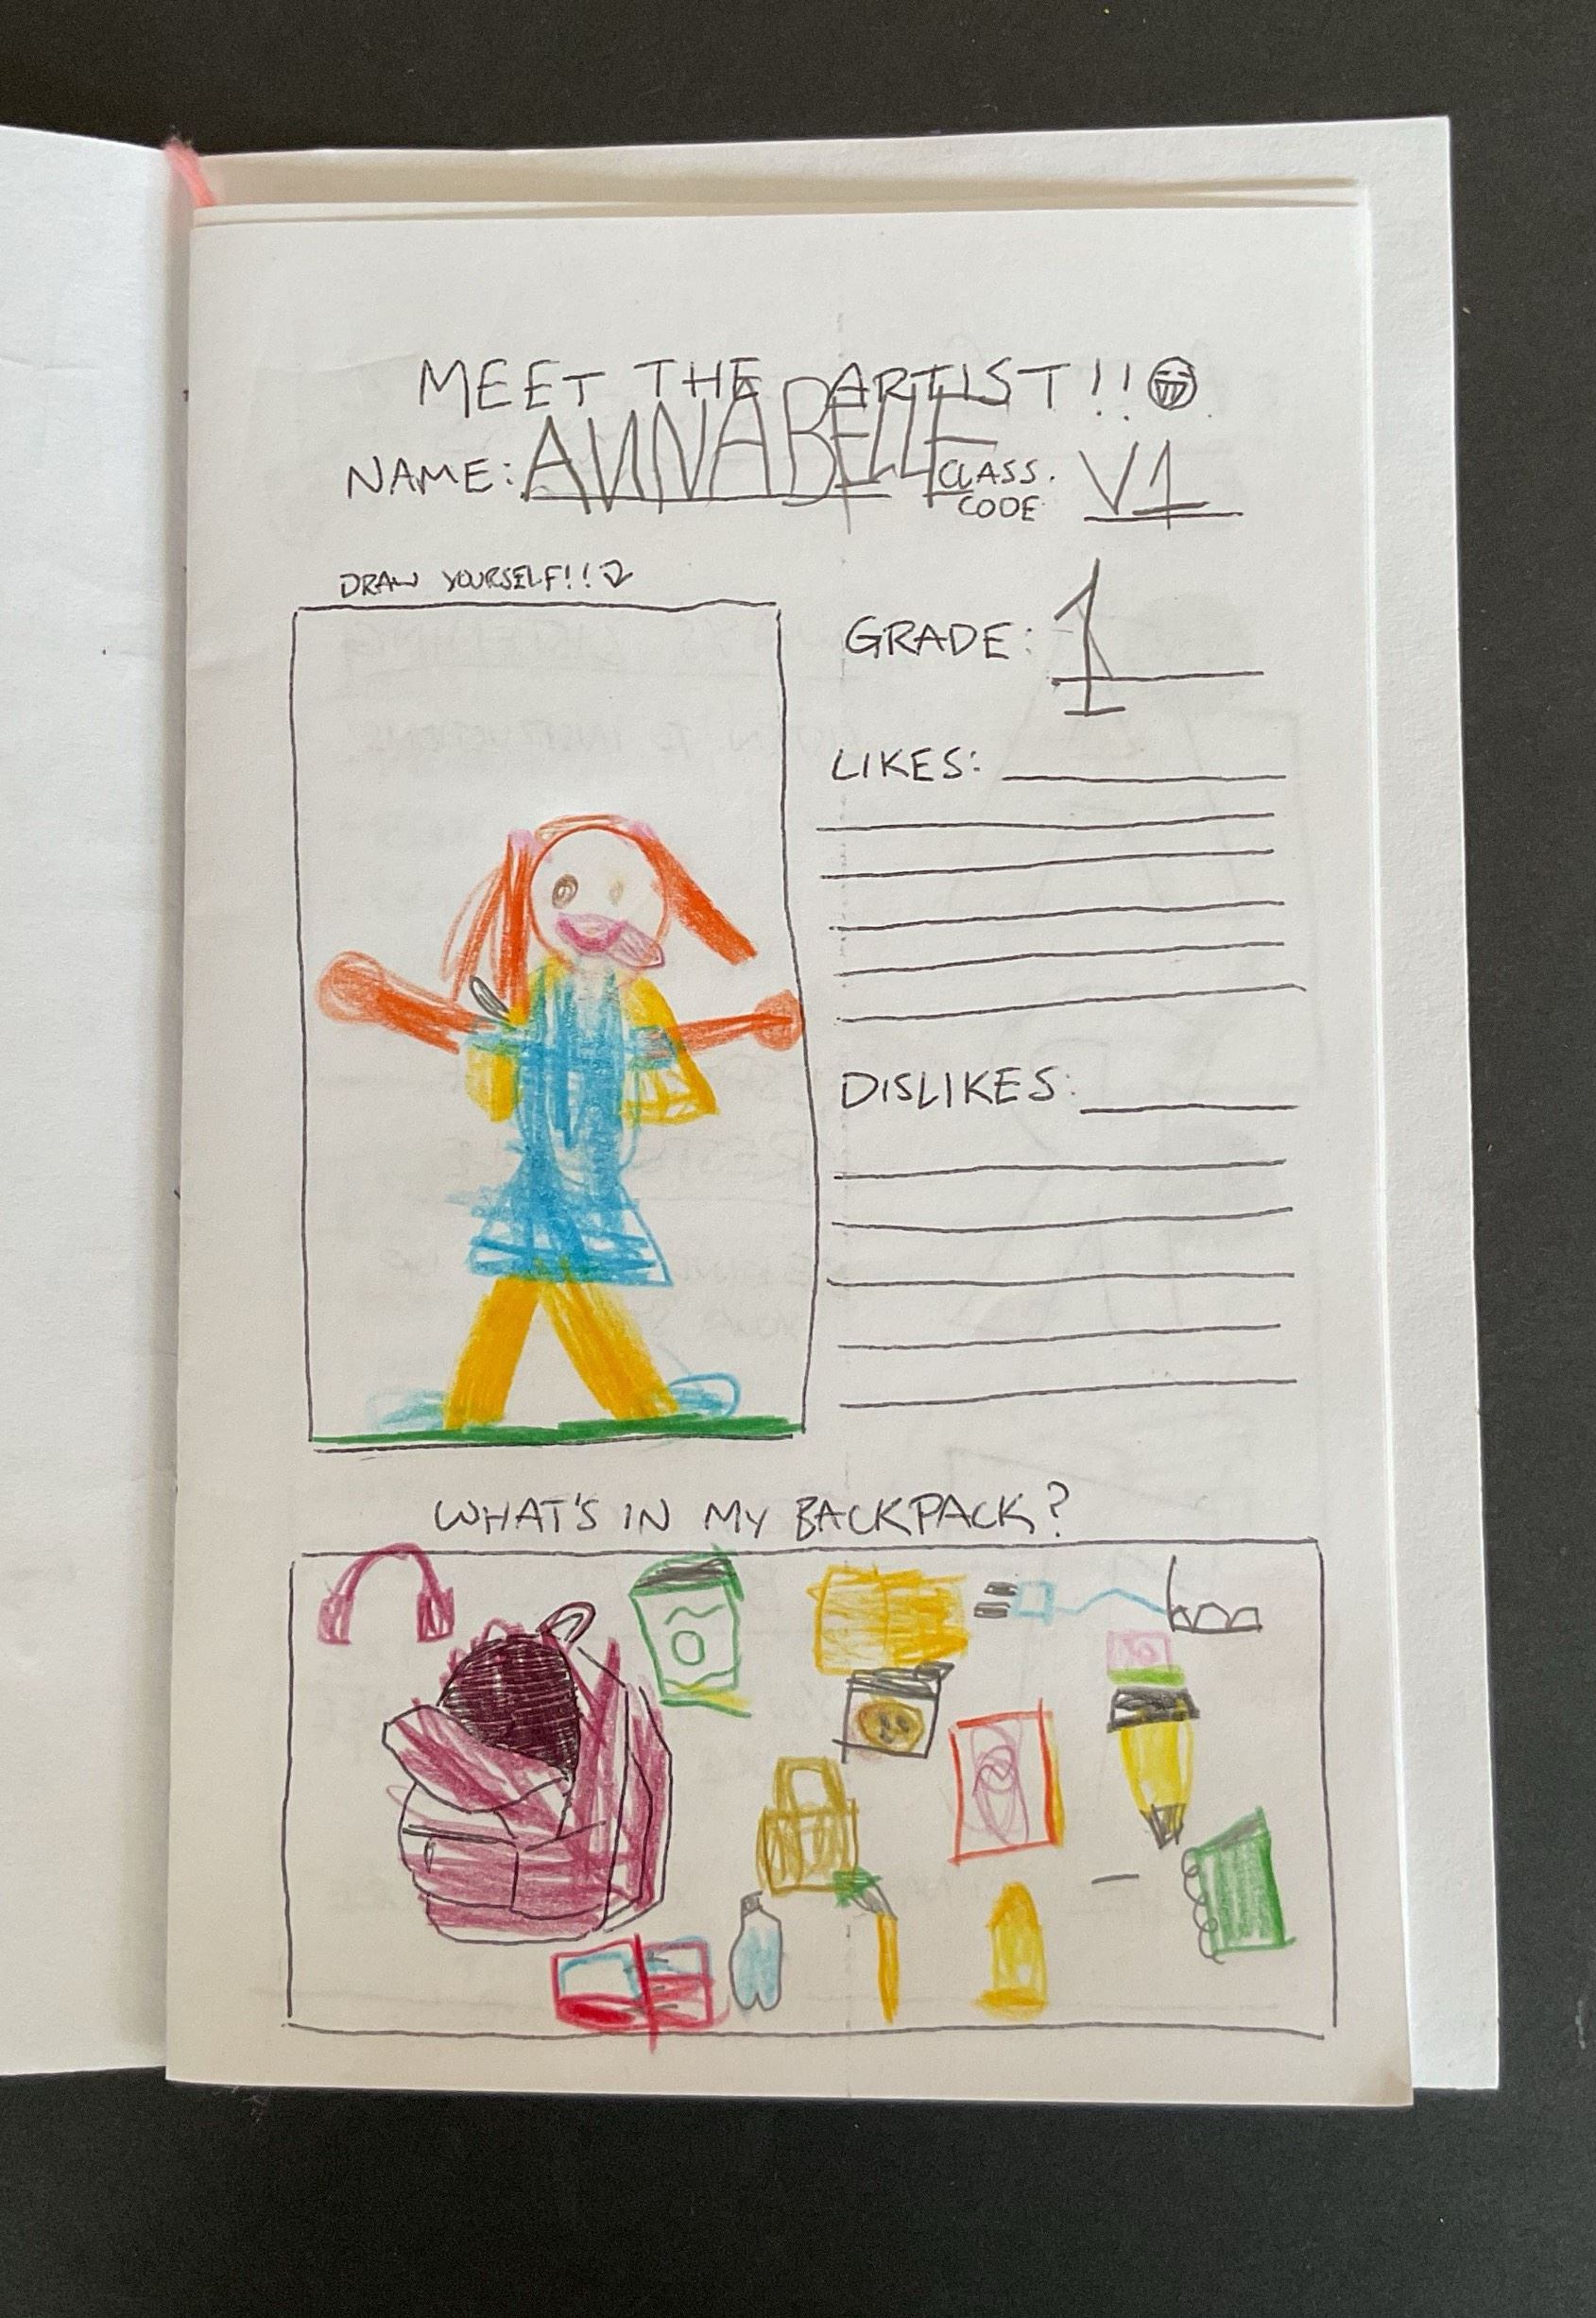 MEET THE ARTIST!!
NAME: ANNABELLE CLASS. CODE V1
DRAW YOURSELF!!
GRADE: 1
LIKES:
DISLIKES:
WHAT'S IN MY BACKPACK?